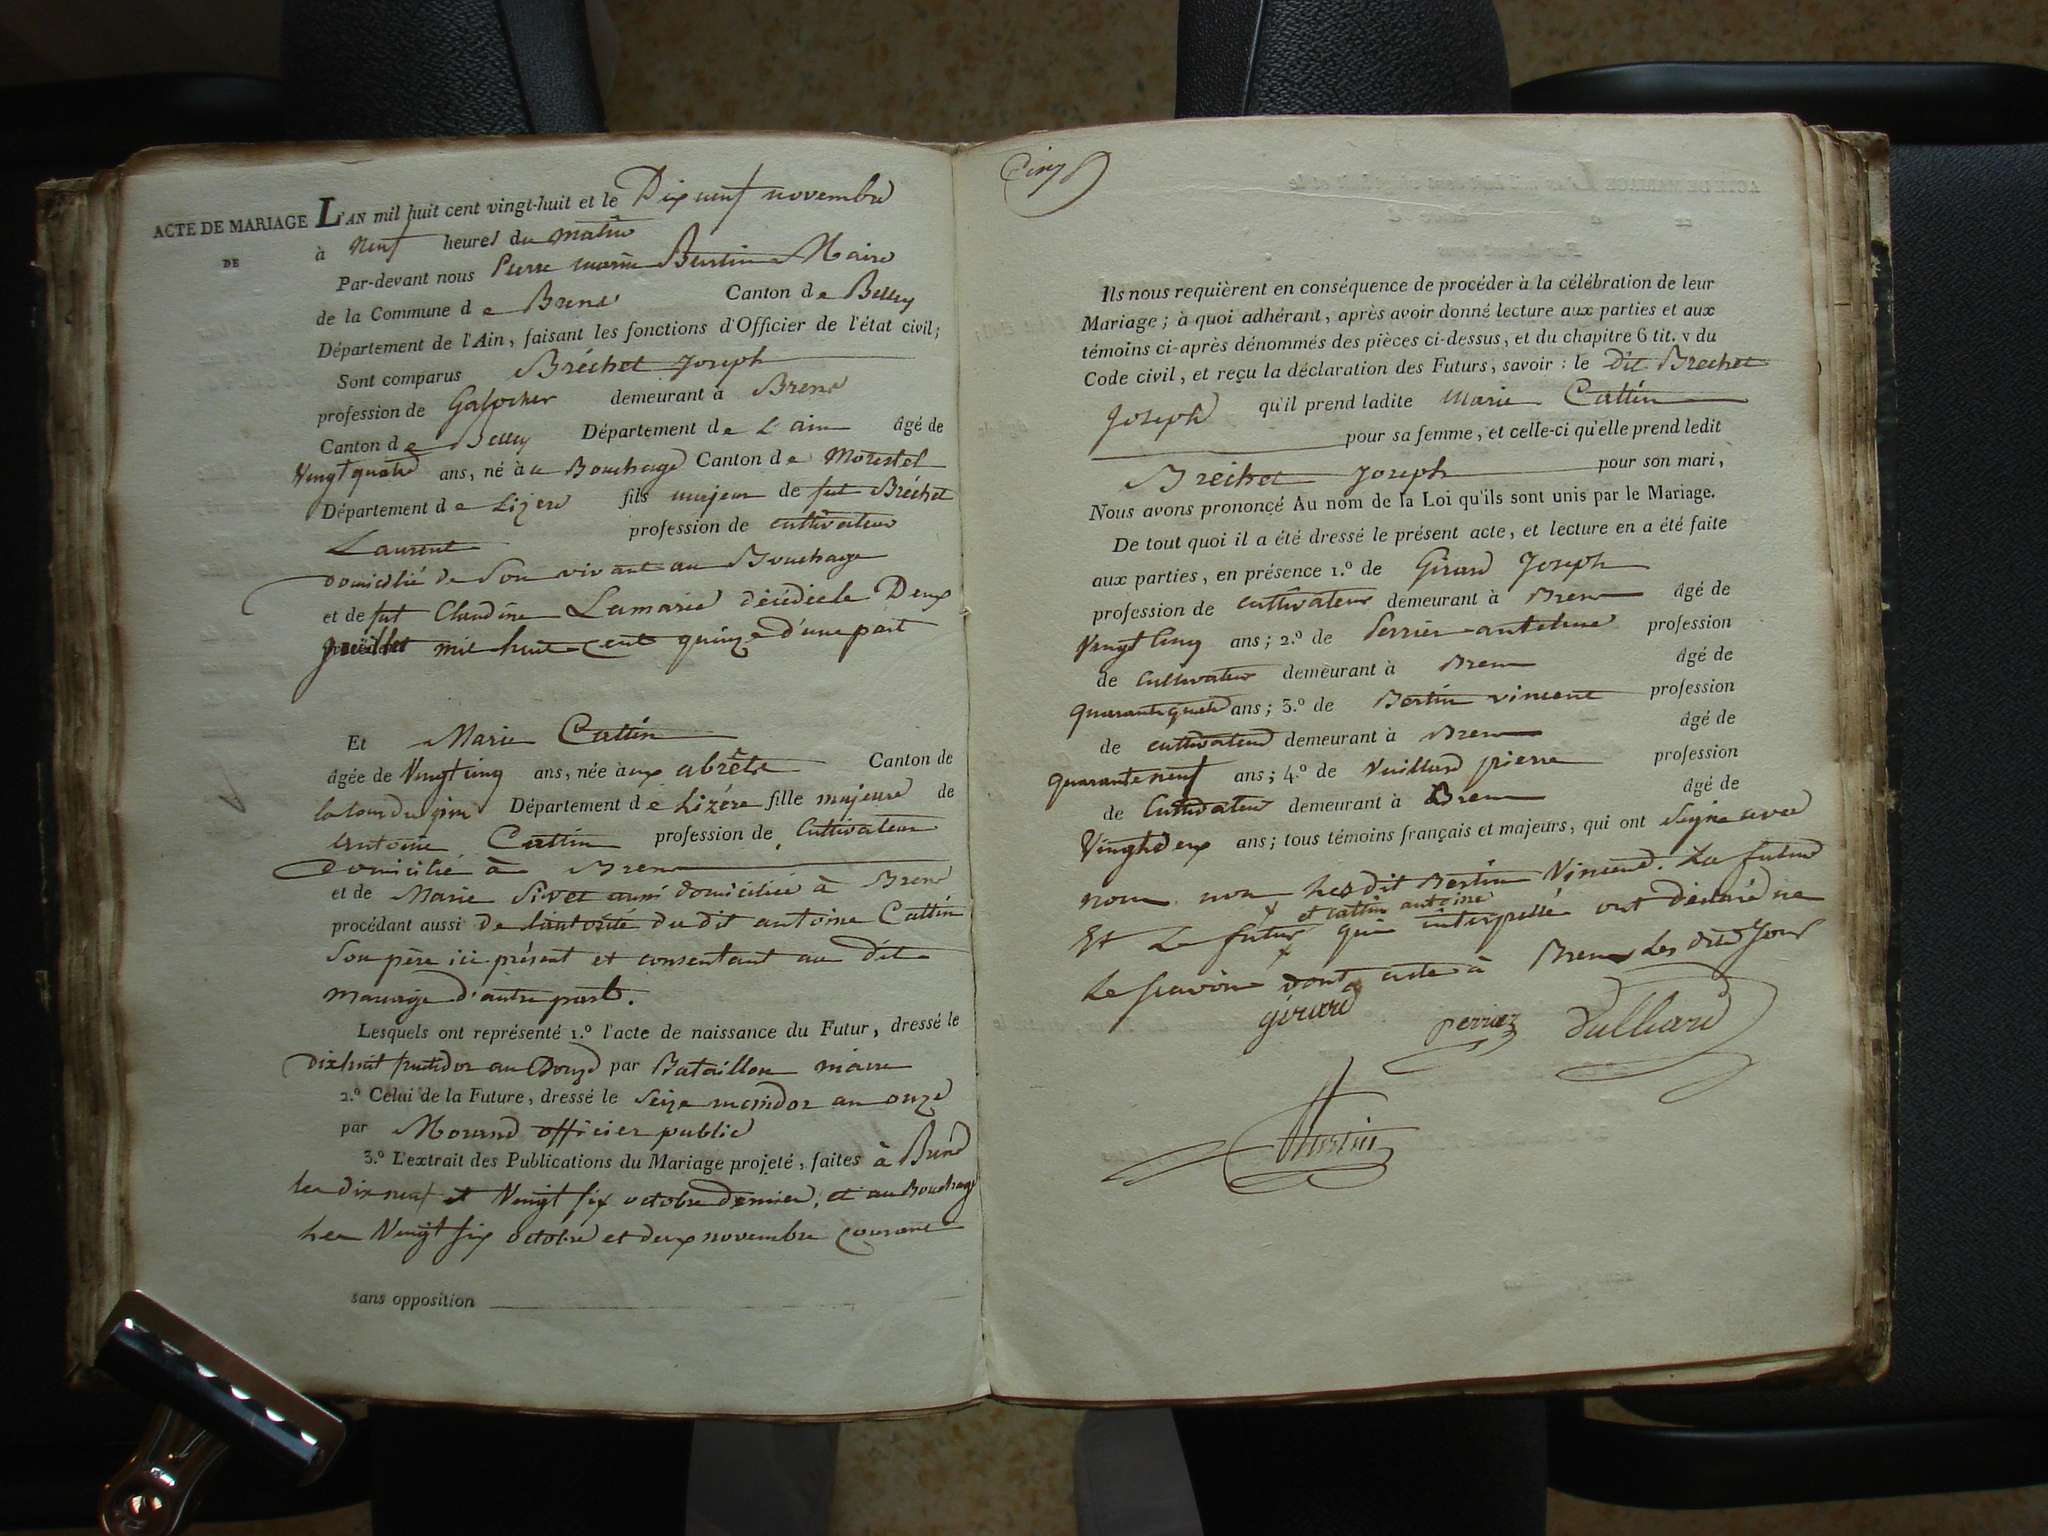 ACTE DE MARIAGE L'AN mil huit cent vingt-huit et le Dix neuf novembre
DE
à Neuf heures du matin
Par-devant nous Pierre marin Burtin Maire
de la Commune de Brens Canton de Belley
Département de l'Ain, faisant les fonctions d'Officier de l'état civil;
Sont comparus Bréchet Joseph
profession de demeurant à Brens
Canton de Belley Département de L'ain âgé de
Vingt quatre ans, né à au Bouchage Canton de Morestel
Département de Lizere fils majeur de fut Bréchet
Laurent profession de cultivateur
domicilié de Son vivant au Bouchage
et de fut Claudine Lamarie décédée le Deux
Juillet mil huit cent quinze d'une part
Et Marie Cattin
âgée de Vingt cinq ans, née aux abrêts Canton de
la tour du pin Département de Lizére fille majeure de
Antoine Cattin profession de Cultivateur
Domicilié à Bren
et de Marie Sivet aussi domiciliée à Brens
procédant aussi de lautorité du dit antoine Cattin
Son père ici présent et consentant au dit
mariage d'autre part.
Lesquels ont représenté 1.º l'acte de naissance du Futur, dressé le
dixhuit frutidor an Douze par Bataillon maire
2.º Celui de la Future, dressé le Seize mesidor an onze
par Morand officier public
3.º L'extrait des Publications du Mariage projeté, faites à Brens
les dix neuf et Vingt six octobre dernier, et au Bouchage
Les Vingt six octobre et deux novembre courant
sans opposition
Cinq
Ils nous requièrent en conséquence de procéder à la célébration de leur
Mariage; à quoi adhérant, après avoir donné lecture aux parties et aux
témoins ci-après dénommés des pièces ci-dessus, et du chapitre 6 tit. v du
Code civil, et reçu la déclaration des Futurs, savoir: le dit Brechet
Joseph qu'il prend ladite Marie Cattin
pour sa femme, et celle-ci qu'elle prend ledit
Bréchet Joseph pour son mari,
Nous avons prononcé Au nom de la Loi qu'ils sont unis par le Mariage.
De tout quoi il a été dressé le présent acte, et lecture en a été faite
aux parties, en présence 1.º de Girard Joseph
profession de cultivateur demeurant à Bren âgé de
Vingt Cinq ans; 2.º de Perrier antelme profession
de Cultivateur demeurant à Bren âgé de
quarante quatre ans; 3.º de Bertin vincent profession
de cultivateur demeurant à Bren âgé de
quarante neuf ans; 4.º de Vuillard pierre profession
de Cultivateur demeurant à Bren âgé de
Vingt deux ans; tous témoins français et majeurs, qui ont Signé avec
nous non Les dit Bertin Vincend. La future
et cattin antoine
Et Le futur qui interpellé ont déclaré ne
Le scavoir dont acte à Brens Les dits Jour
girard perrier Vulliard
Burtin